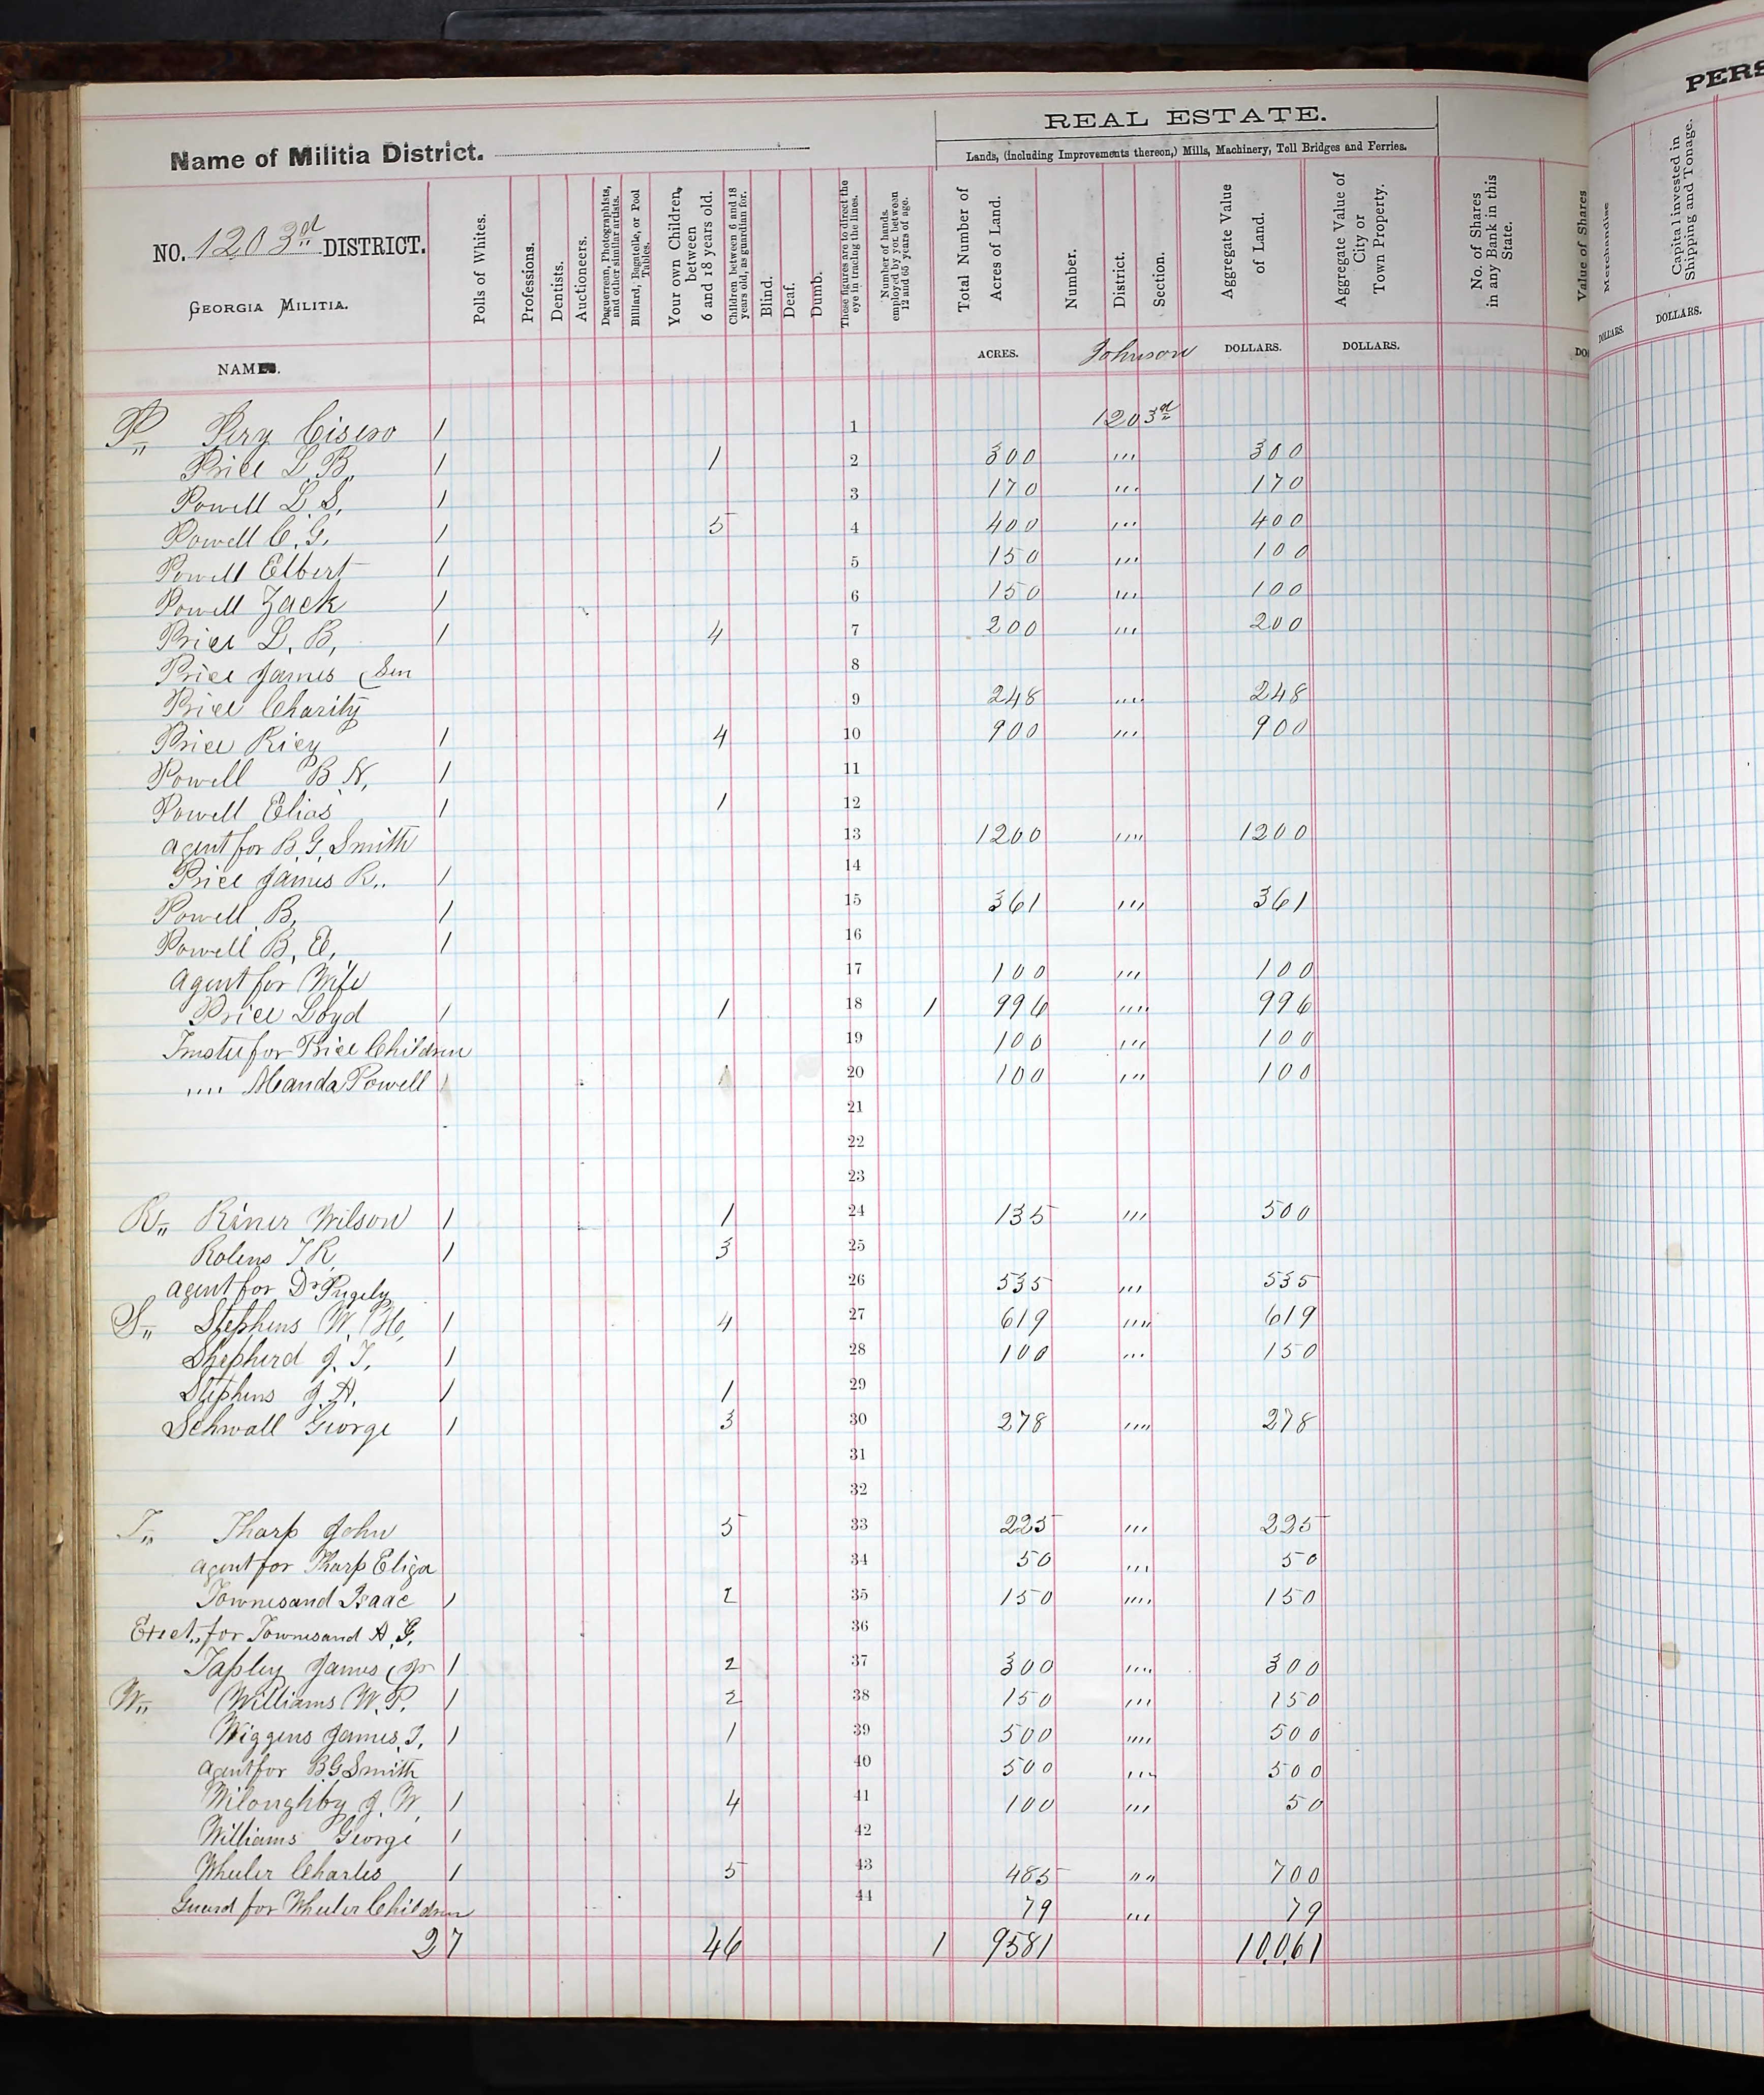 REAL ESTATE.
Name of Militia District.
Lands, (including Improvements thereon,) Mills, Machinery, Toll Bridges and Ferries.
NO. 1203rd DISTRICT.
GEORGIA MILITIA.
NAMES.
Polls of Whites.
Professions.
Dentists.
Auctioneers.
Daguerrean, Photographists, and other similar artists.
Billiard, Bagatelle, or Pool Tables.
Your own Children, between 6 and 18 years old.
Children between 6 and 18 years old, as guardian for.
Blind.
Deaf.
Dumb.
These figures are to direct the eye in tracing the lines.
Number of hands. employed by you between 12 and 65 years of age.
Total Number of Acres of Land.
ACRES.
Number.
District.
Section.
Johnson
Aggregate Value of Land.
DOLLARS.
Aggregate Value of City or Town Property.
DOLLARS.
No. of Shares in any Bank in this State.
Value of Shares
DO
PERS
Merchandise
DOLLARS.
Capital invested in Shipping and Tonage.
DOLLARS.
P,, Pery Cisero 1 1 1203rd
Price L. B. 1 1 2 300 ,,, 300
Powell L. S. 1 3 170 ,,, 170
Powell C. G. 1 5 4 400 ,,, 400
Powell Elbert 1 5 150 ,,, 100
Powell Zack 1 6 150 ,,, 100
Price L. B, 1 4 7 200 ,,, 200
Price James (Sen 8
Price Charity 9 248 ,,,, 248
Price Riey 1 4 10 900 ,,, 900
Powell B N, 1 11
Powell Elias 1 1 12
agent for B. G. Smith 13 1200 ,,,, 1200
Price James R.. 1 14
Powell B, 1 15 361 ,,, 361
Powell B, E, 1 16
agent for Wife 17 100 ,,, 100
Price Loyd 1 1 18 1 996 ,,,, 996
Trustee for Price Children 19 100 ,,, 100
,,,, Manda Powell 20 100 ,,, 100
21
22
23
R,, Riner Wilson 1 1 24 135 ,,, 500
Rolins T. R, 1 3 25
agent for Dr Pugely 26 535 ,,, 535
S,, Stephens W. H, 1 4 27 619 ,,,, 619
Shepherd J. T, 1 28 100 ,,, 150
Stephens J. A. 1 1 29
Schwall George 1 3 30 278 ,,,, 278
31
32
T,, Tharp John 5 33 225 ,,, 225
agent for Tharp Eliza 34 50 ,,, 50
Townesand Isaac 1 2 35 150 ,,,, 150
Exct,, for Townesand A. G, 36
Tapley James (Jr 1 2 37 300 ,,,, 300
W,, Williams W. P. 1 2 38 150 ,,, 150
Wiggens James, T, 1 1 39 500 ,,,, 500
agent for B G Smith 40 500 ,,,, 500
Wiloughby J. W, 1 4 41 100 ,,, 50
Williams George 1 42
Wheeler Charles 1 5 43 485 ,,,, 700
Guard for Wheeler Children 44 79 ,,, 79
27 46 1 9581 10,061